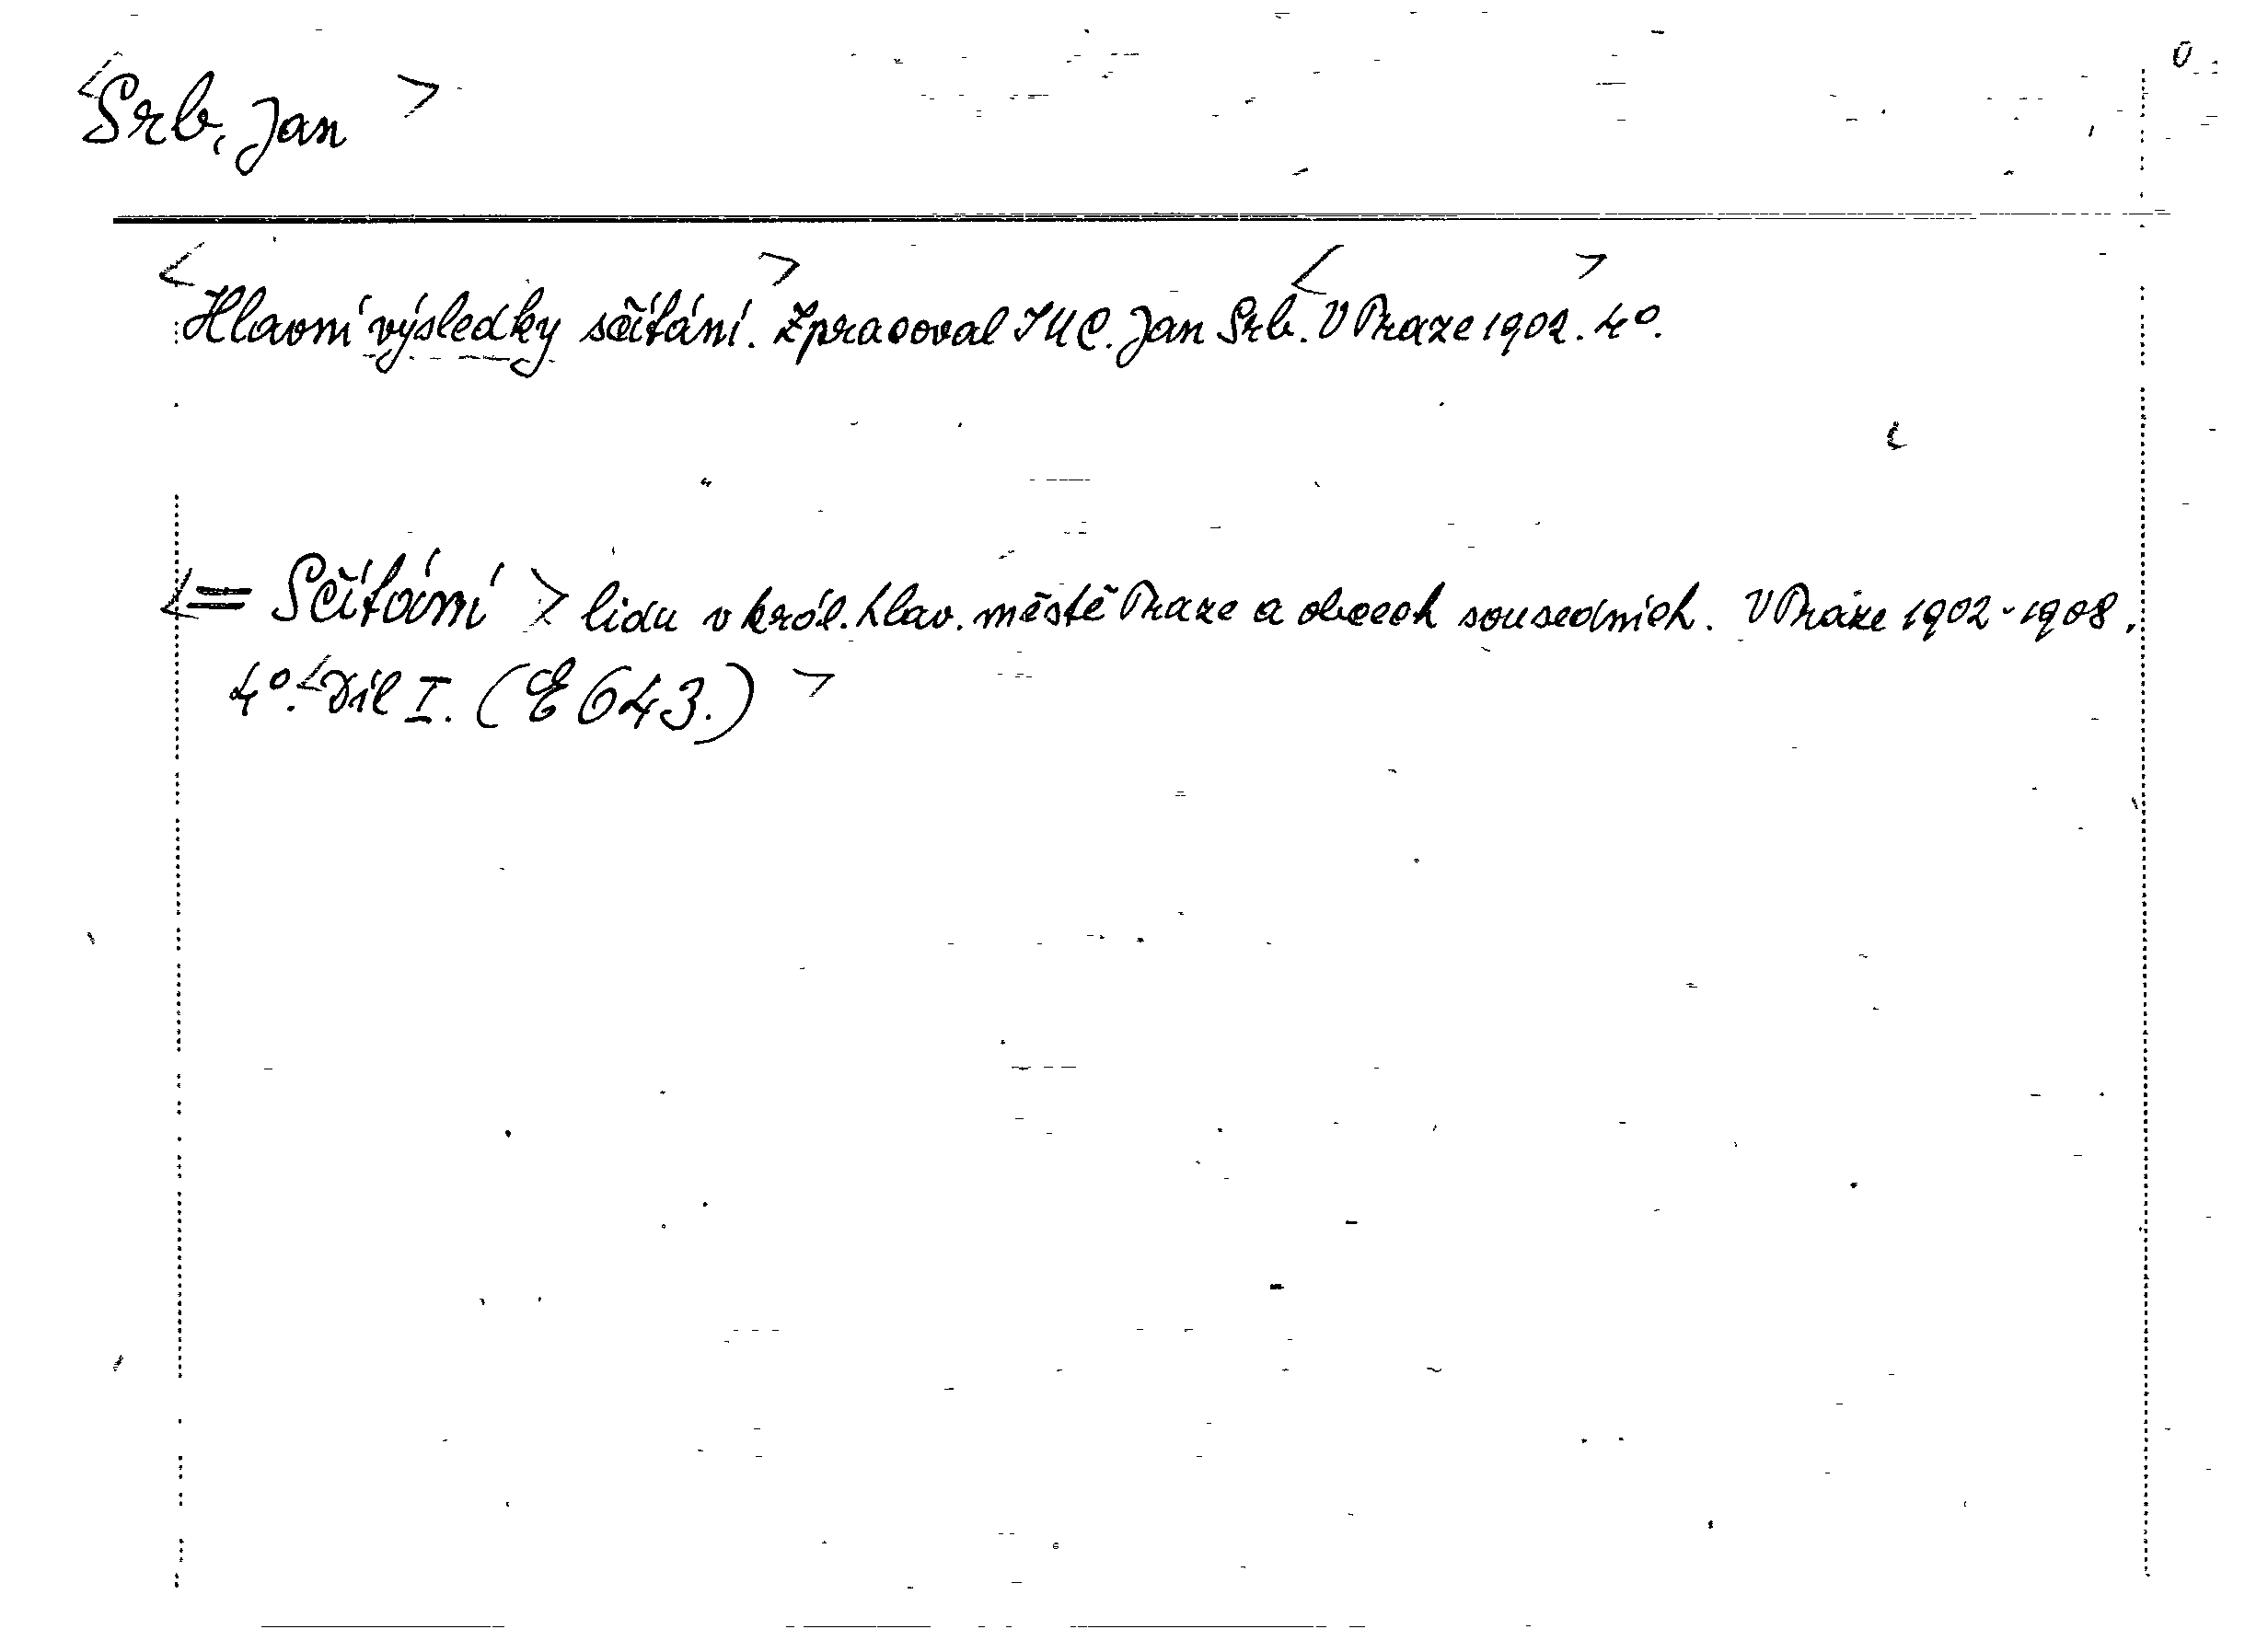 <Srb, Jan>
<Hlavní výsledky sčítání.> Zpracoval JUC. Jan Srb. <V Praze 1902.> 4°.
<= Sčítání> lidu v král. hlav. městě Praze a obcech sousedních. V Praze 1902-1908.
4°. <Díl I. (E 643.)>